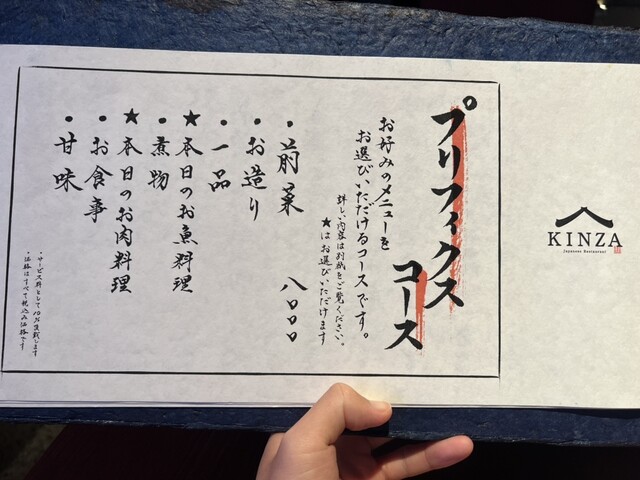 プリフィクス
コース
お好みのメニューを
お選びいただけるコースです。
詳しい内容は別紙をご覧ください。
★はお選びいただけます
・前菜　八〇〇〇
・お造り
・一品
★本日のお魚料理
・煮物
★本日のお肉料理
・お食事
・甘味
・サービス料として10%頂戴します
・価格はすべて税込み価格です
KINZA
Japanese Restaurant